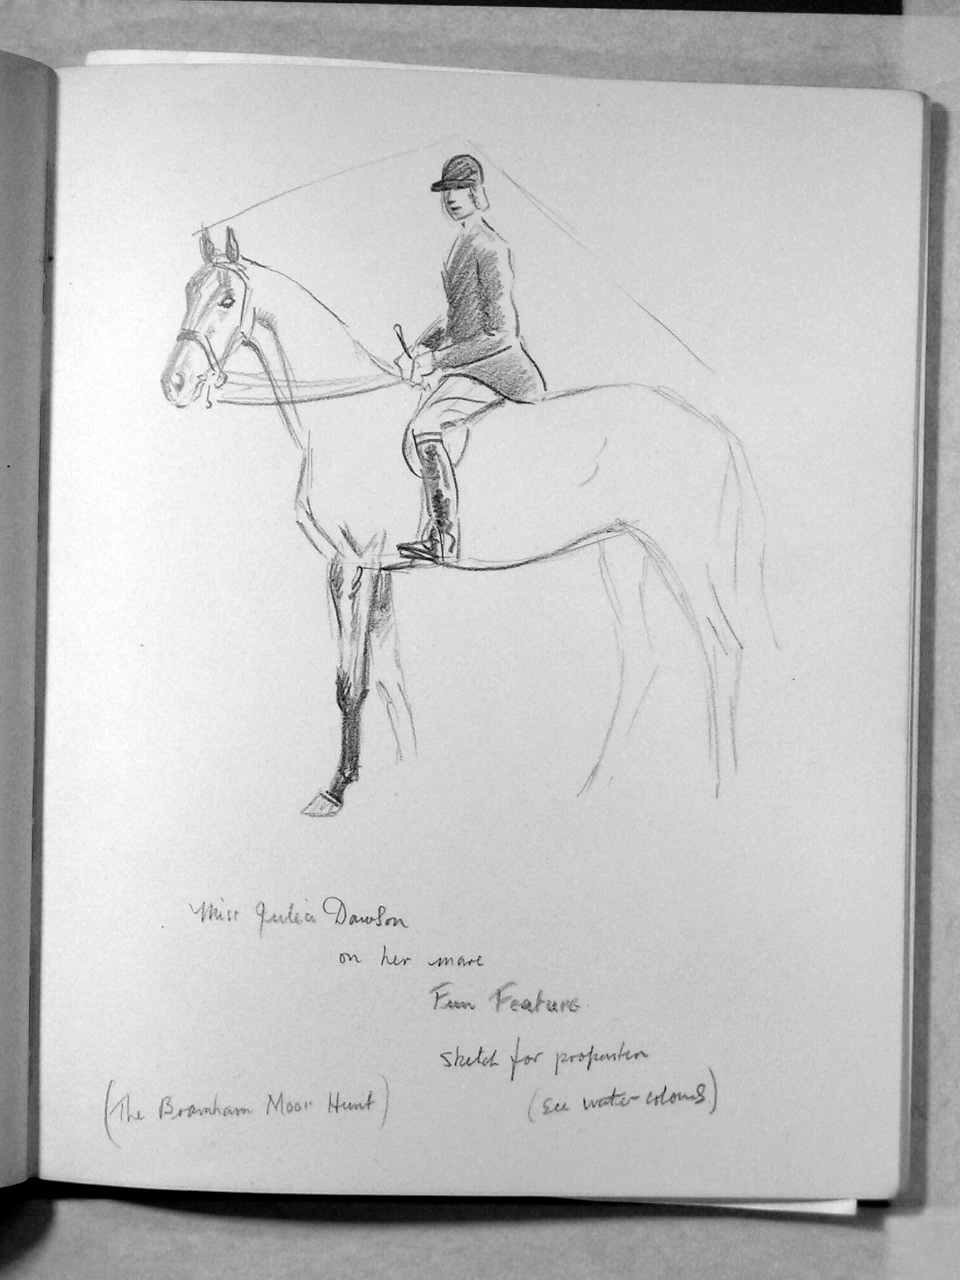 Miss Julia Dawson
on her mare
Fun Feature
sketch for proportion
(The Bramham Moor Hunt)
(see water-colours)